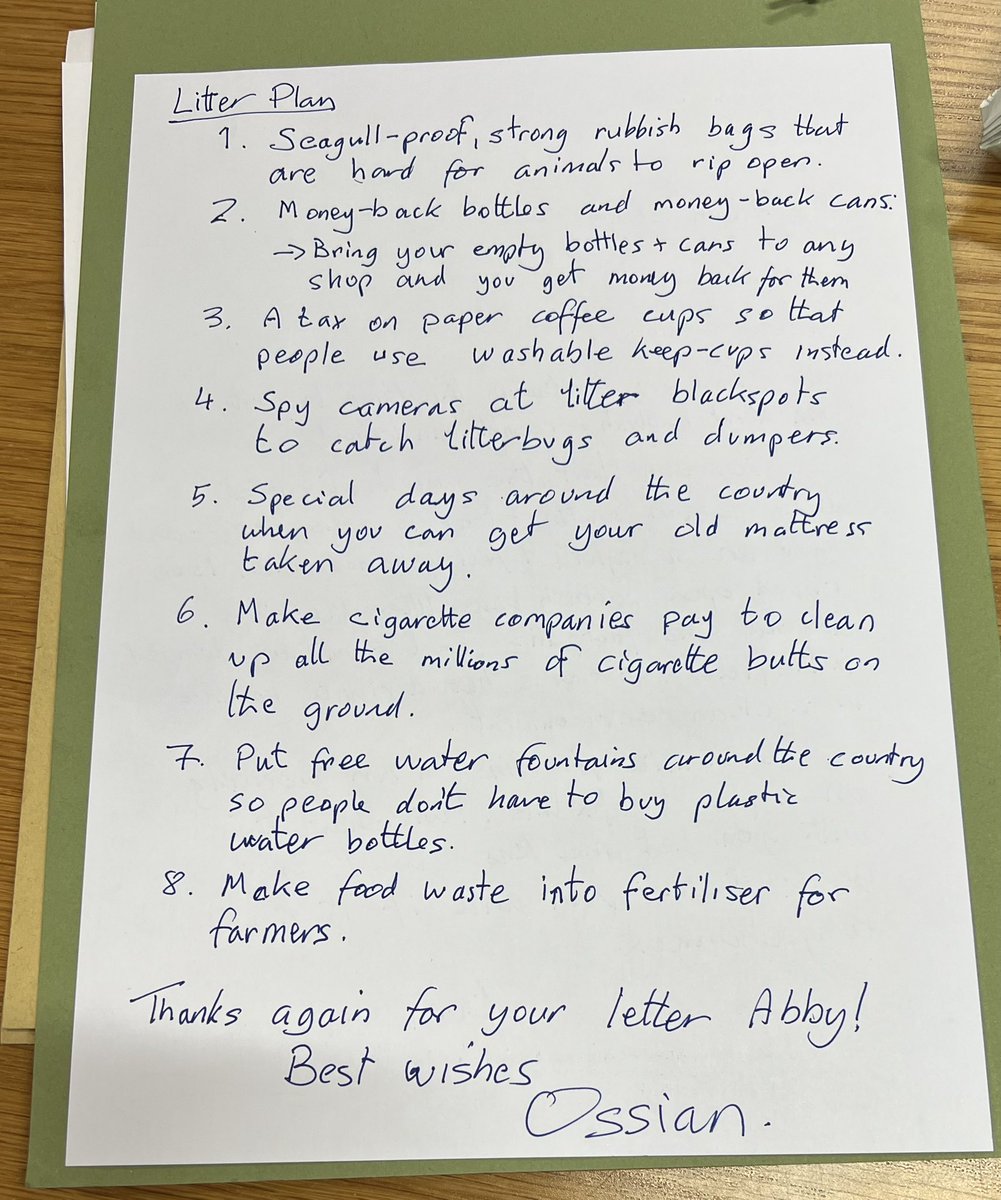 Litter Plan
1. Seagull-proof, strong rubbish bags that
are hard for animals to rip open.
2. Money-back bottles and money-back cans:
→ Bring your empty bottles + cans to any
shop and you get money back for them
3. A tax on paper coffee cups so that
people use washable keep-cups instead.
4. Spy cameras at litter blackspots
to catch litterbugs and dumpers.
5. Special days around the country
when you can get your old mattress
taken away.
6. Make cigarette companies pay to clean
up all the millions of cigarette butts on
the ground.
7. Put free water fountains around the country
so people don't have to buy plastic
water bottles.
8. Make food waste into fertiliser for
farmers.
Thanks again for your letter Abby!
Best wishes
Ossian.